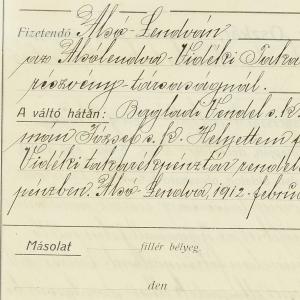 Fizetendő Alsó-Lendván
az Alsólendva-Vidéki Taka
részvény-társaságnál.
A váltó hátán: Bagladi Vendel s. k.
man József s. k. Helyettem f
Vidéki takarékpénztár rendel
pénzben. Alsó Lendva, 1912. februá
Másolat fillér bélyeg.
den